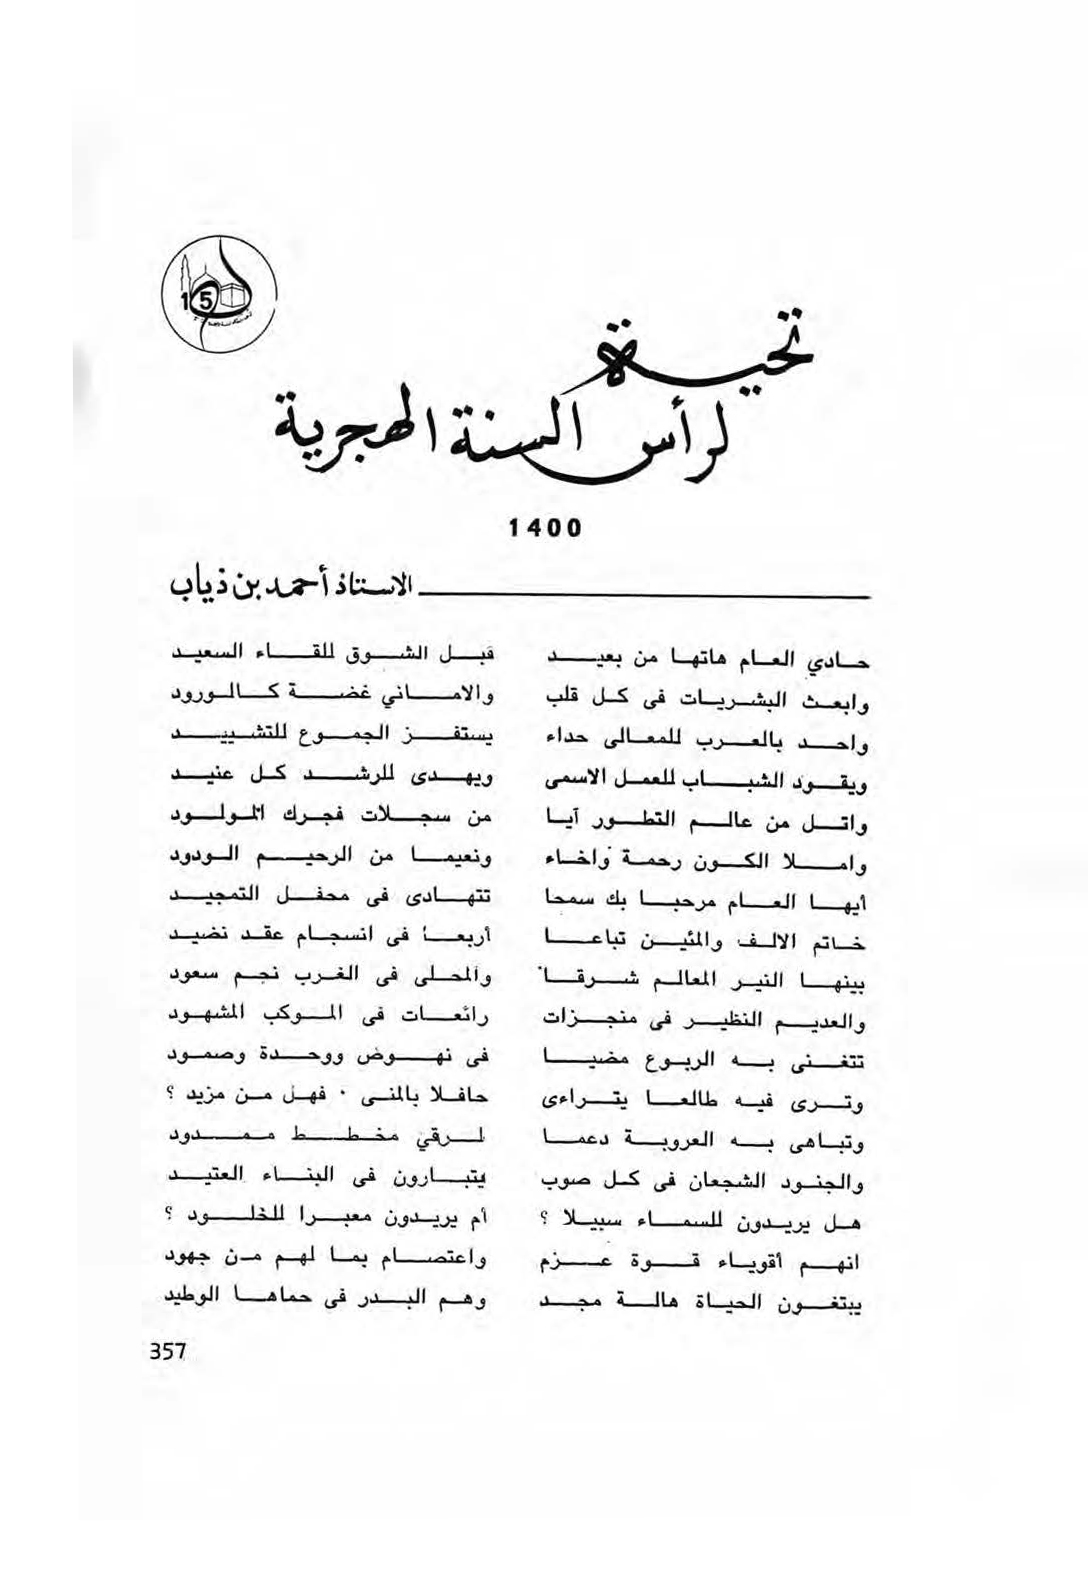 15
تحية
لرأس السنة الهجرية
1400
الاستاذ أحمد بن ذياب
حادي العام هاتها من بعيد قبل الشوق للقاء السعيد
وابعث البشريات فى كل قلب والامانى غضة كالورود
واحد بالعرب للمعالى حداء يستفز الجموع للتشييد
ويقود الشباب للعمل الاسمى ويهدى للرشد كل عنيد
واتل من عالم التطور آيا من سجلات فجرك المولود
واملا الكون رحمة واخاء ونعيما من الرحيم الودود
أيها العام مرحبا بك سمحا تتهادى فى محفل التمجيد
خاتم الالف والمئين تباعا أربعا فى انسجام عقد نضيد
بينها النير المعالم شرقا والمحلى فى الغرب نجم سعود
والعديم النظير فى منجزات رائعات فى الموكب المشهود
تتغنى به الربوع مضيا فى نهوض ووحدة وصمود
وترى فيه طالعا يتراءى حافلا بالمنى · فهل من مزيد ؟
وتباهى به العروبة دعما لرقي مخطط ممدود
والجنود الشجعان فى كل صوب يتبارون فى البناء العتيد
هل يريدون للسماء سبيلا ؟ أم يريدون معبرا للخلود ؟
انهم أقوياء قوة عزم واعتصام بما لهم من جهود
يبتغون الحياة هالة مجد وهم البدر فى حماها الوطيد
357